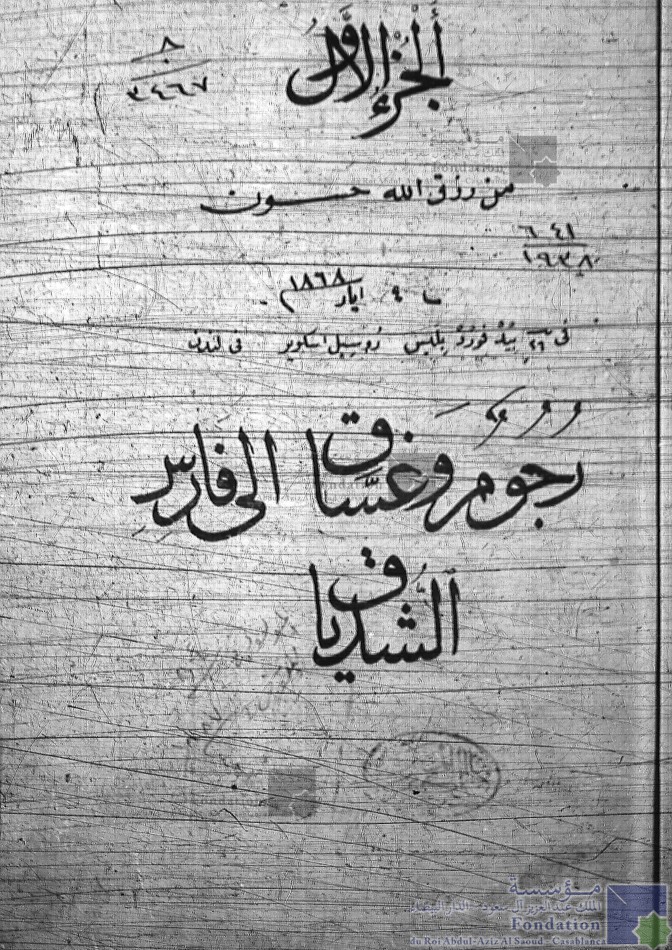 الجزءُ الأوَّل
٨
٣٤٦٧
من رزق الله حسون
٦٤١
١٩٣٨
٩ ايار ١٨٦٨
في ٢٦ بِيدْفُورْدْ پِلَيس رُسِيل اسكوير في لندن
رُجُومٌ وغسَّاق الى فارِس
الشدياق
مؤسسة
الملك عبد العزيز آل سعود - الدار البيضاء
Fondation
du Roi Abdul-Aziz Al Saoud - Casablanca